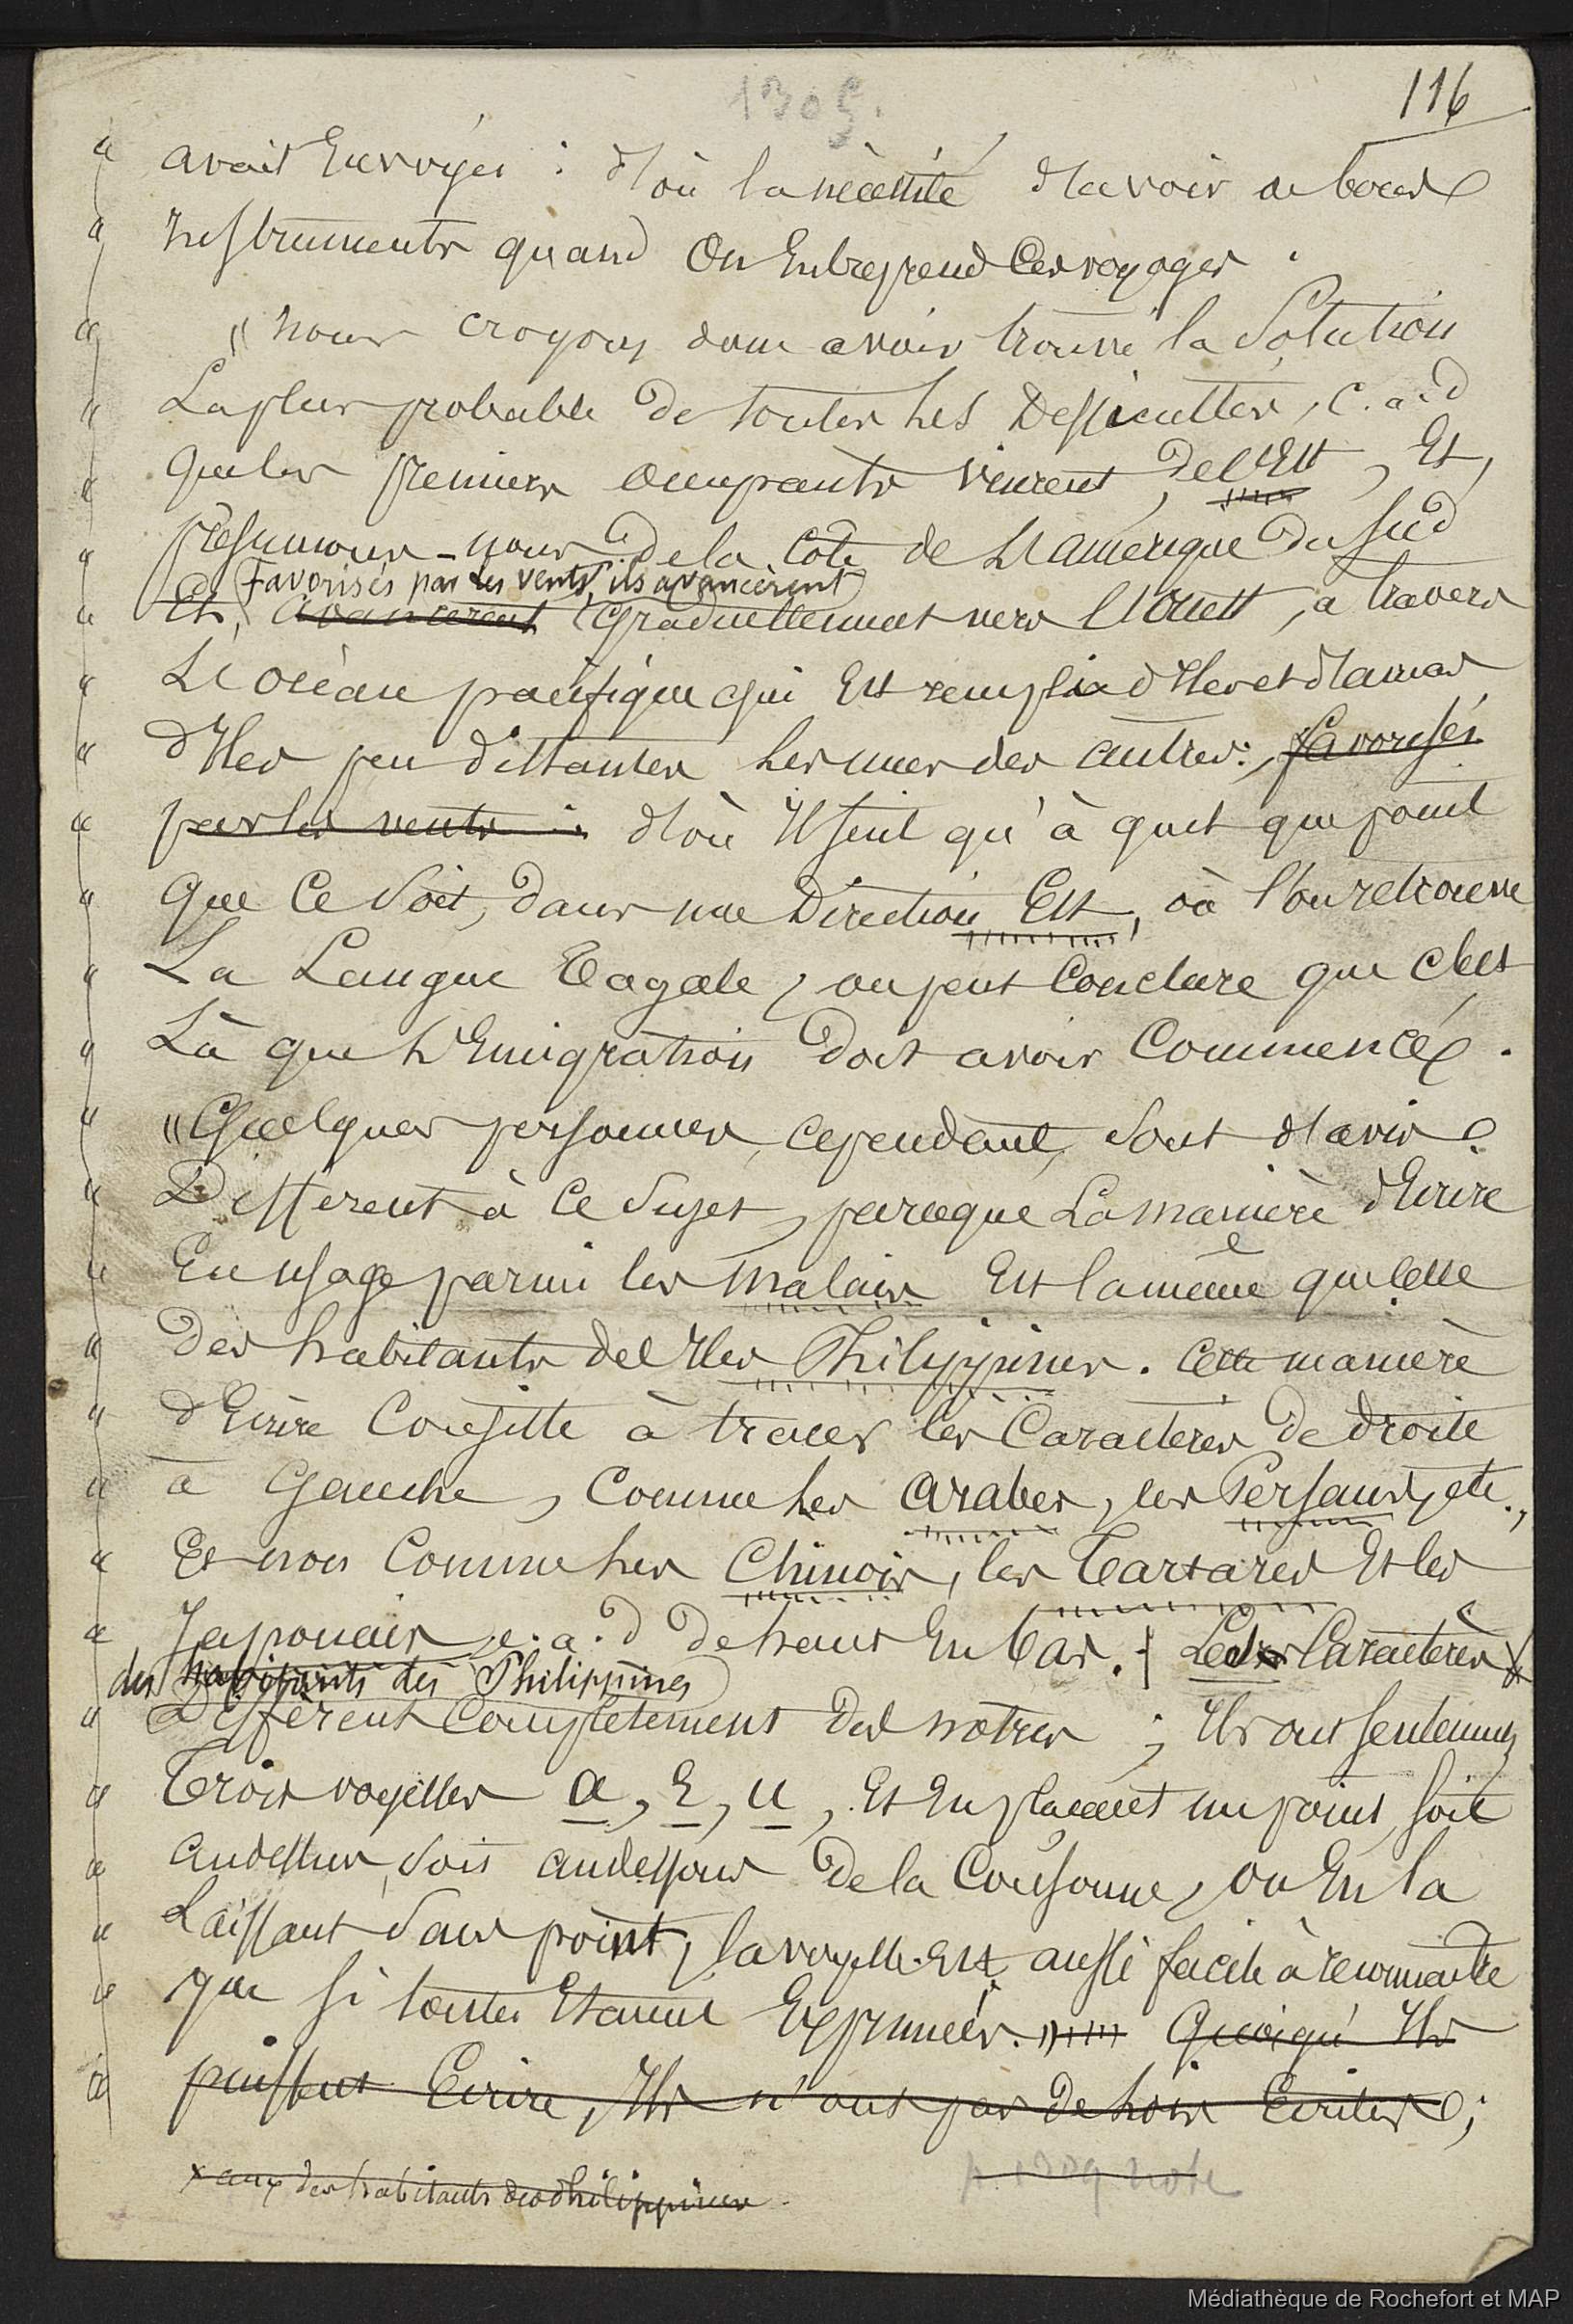 1305.
116
" avait Envoyés : d'où la nécessité d'avoir de bons
" Instruments quand On Entreprend Ces voyages.
" " nous croyons donc avoir trouvé la Solution
" La plus probable de toutes les Difficultés, c. a. d
" que les premiers occupants vinrent, de l'Est, Et,
" présumons-nous de la Côte de L'amérique du Sud
Favorisés par les vents, ils avancèrent
" Et, avancèrent Graduellement vers l'Ouest, a travers
" L'océan pacifique qui Est rempli d'Iles et d'amas
" d'Iles peu distantes les unes des autres; favorisés
" par les vents : d'où Il suit qu'à quel que point
" que Ce soit, dans une Direction Est, où l'on retrouve
" La Langue Tagale, on peut Conclure que c'est
" Là que L'Emigration doit avoir Commencé.
" " Quelques personnes, cependant, sont d'avis
" Différent à Ce Sujet, parceque La manière d'Ecrire
" En usage parmi les Malais Est la même que Celle
" des habitants des Iles Philippines. Cette manière
" d'Ecrire Consiste à tracer les Caractères de droite
" à Gauche, Comme les arabes, les Persans, etc.,
" Et non Comme les Chinois, les Tartares Et les
" Japonais, c. a. d de haut En bas. Les Caractères x
des habitants des Philippines
" Diffèrent Complètement des notres ; Ils ont seulement
" Trois voyelles a, E, u, Et En plaçant un point, soit
" audessus, soit audessous de la Consonne, ou En la
" Laissant Sans point, la voyelle Est aussi facile à reconnaitre
" que si toutes Etaient Exprimées. Quoiqu'Ils
" puissent Ecrire, Ils n'ont pas de lois Ecrites ;
x aux des habitants des Philippines
p. 1309 note
Médiathèque de Rochefort et MAP